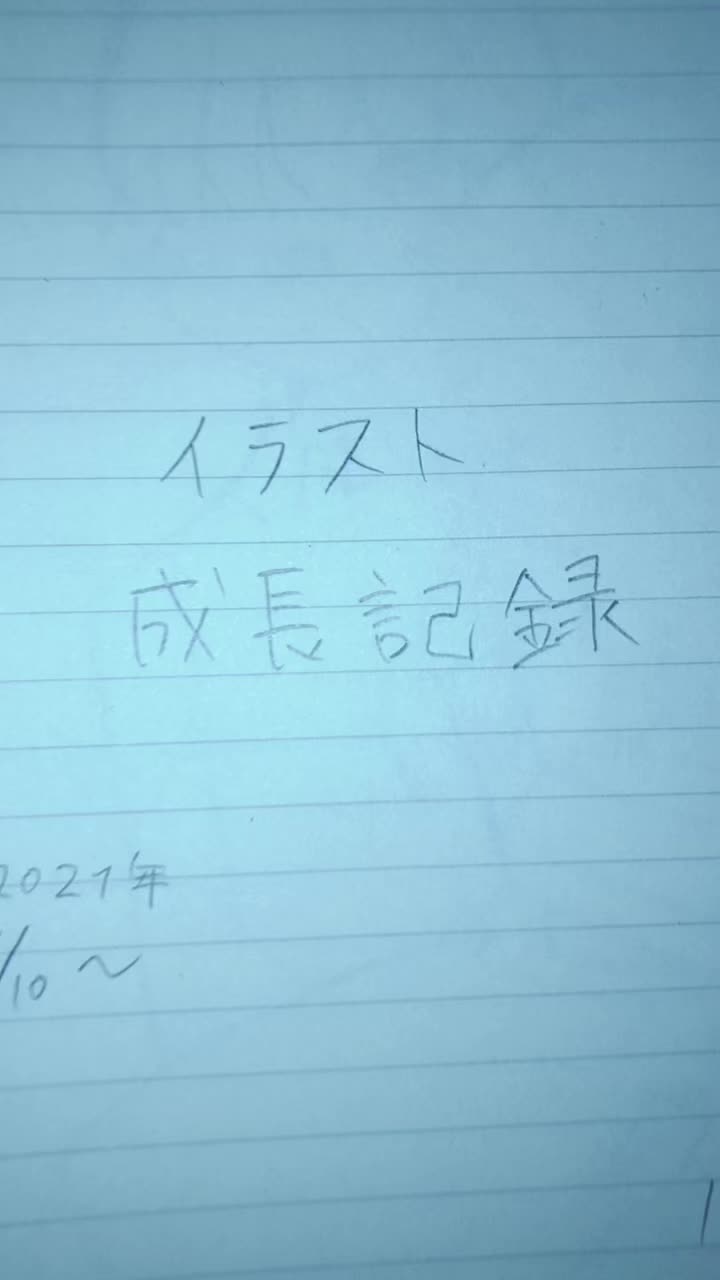 イラスト
成長記録
2021年
/10 ~